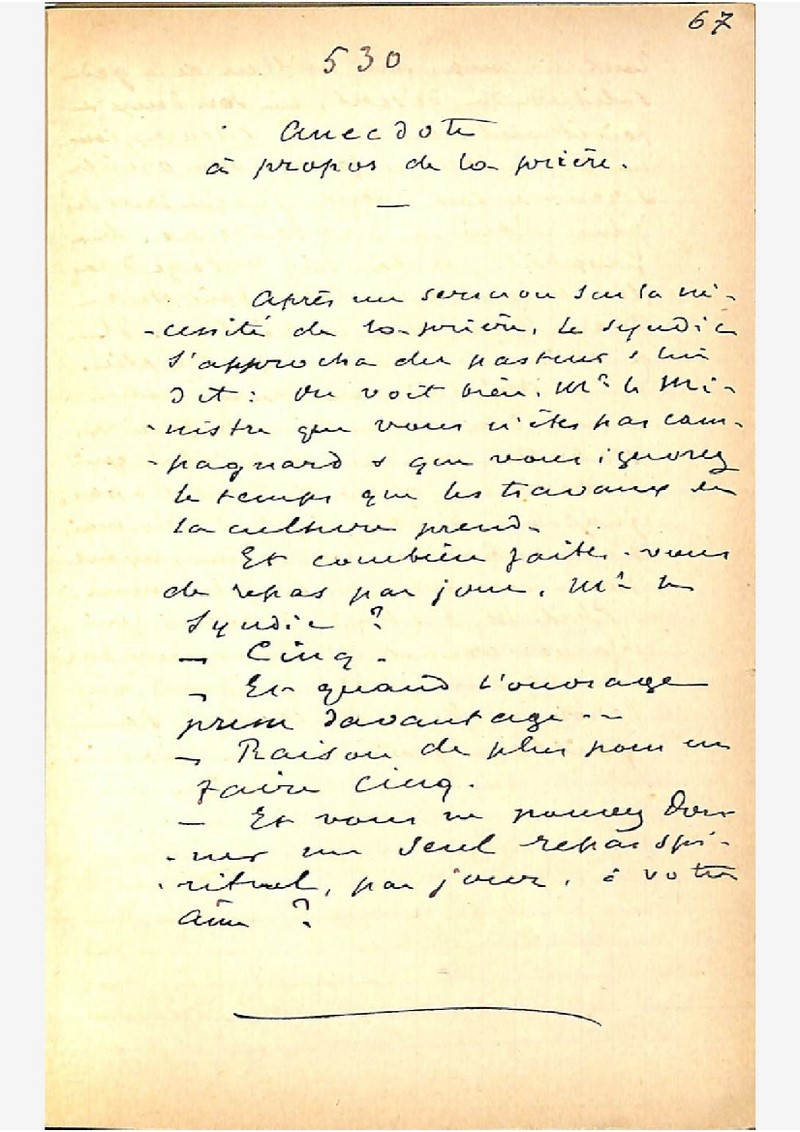 67
530
Anecdote
à propos de la prière.
Après un sermon sur la né-
-cessité de la prière, le syndic
s'approcha du pasteur & lui
dit : On voit bien, Mr le Mi-
-nistre que vous n'êtes pas cam-
-pagnard & que vous ignorez
le temps que les travaux de
la culture prend.
Et combien faites-vous
de repas par jour, Mr le
Syndic ?
— Cinq.
— Et quand l'ouvrage
presse davantage --
— Raison de plus pour en
faire cinq.
— Et vous ne pouvez don-
-ner un seul repas spi-
-rituel, par jour, à votre
âme ?